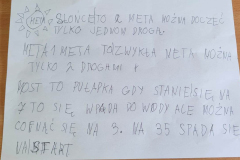 META SŁONCE TO 2 META MOŻNA DOJŚĆ
TYLKO JEDNOM DROGĄ.
META 1 META TO ZWYKŁA META MOŻNA
TYLKO 2 DROGAMI
MOST TO PUŁAPKA GDY STANIE SIĘ NA
7 TO SIĘ WPADA DO WODY ALE MOŻNA
COFNĄĆ SIĘ NA 3. NA 35 SPADA SIĘ
NA START